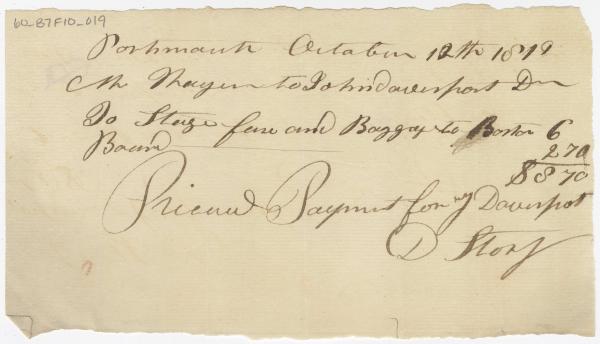 60_B7F10_019
Portsmouth October 12th 1819
Mr Thayer to John Davenport Dr
To Stage fare and Baggag to Boston 6
Board 2 70
$8 70
Riceved Payment for my Davenport
D Story